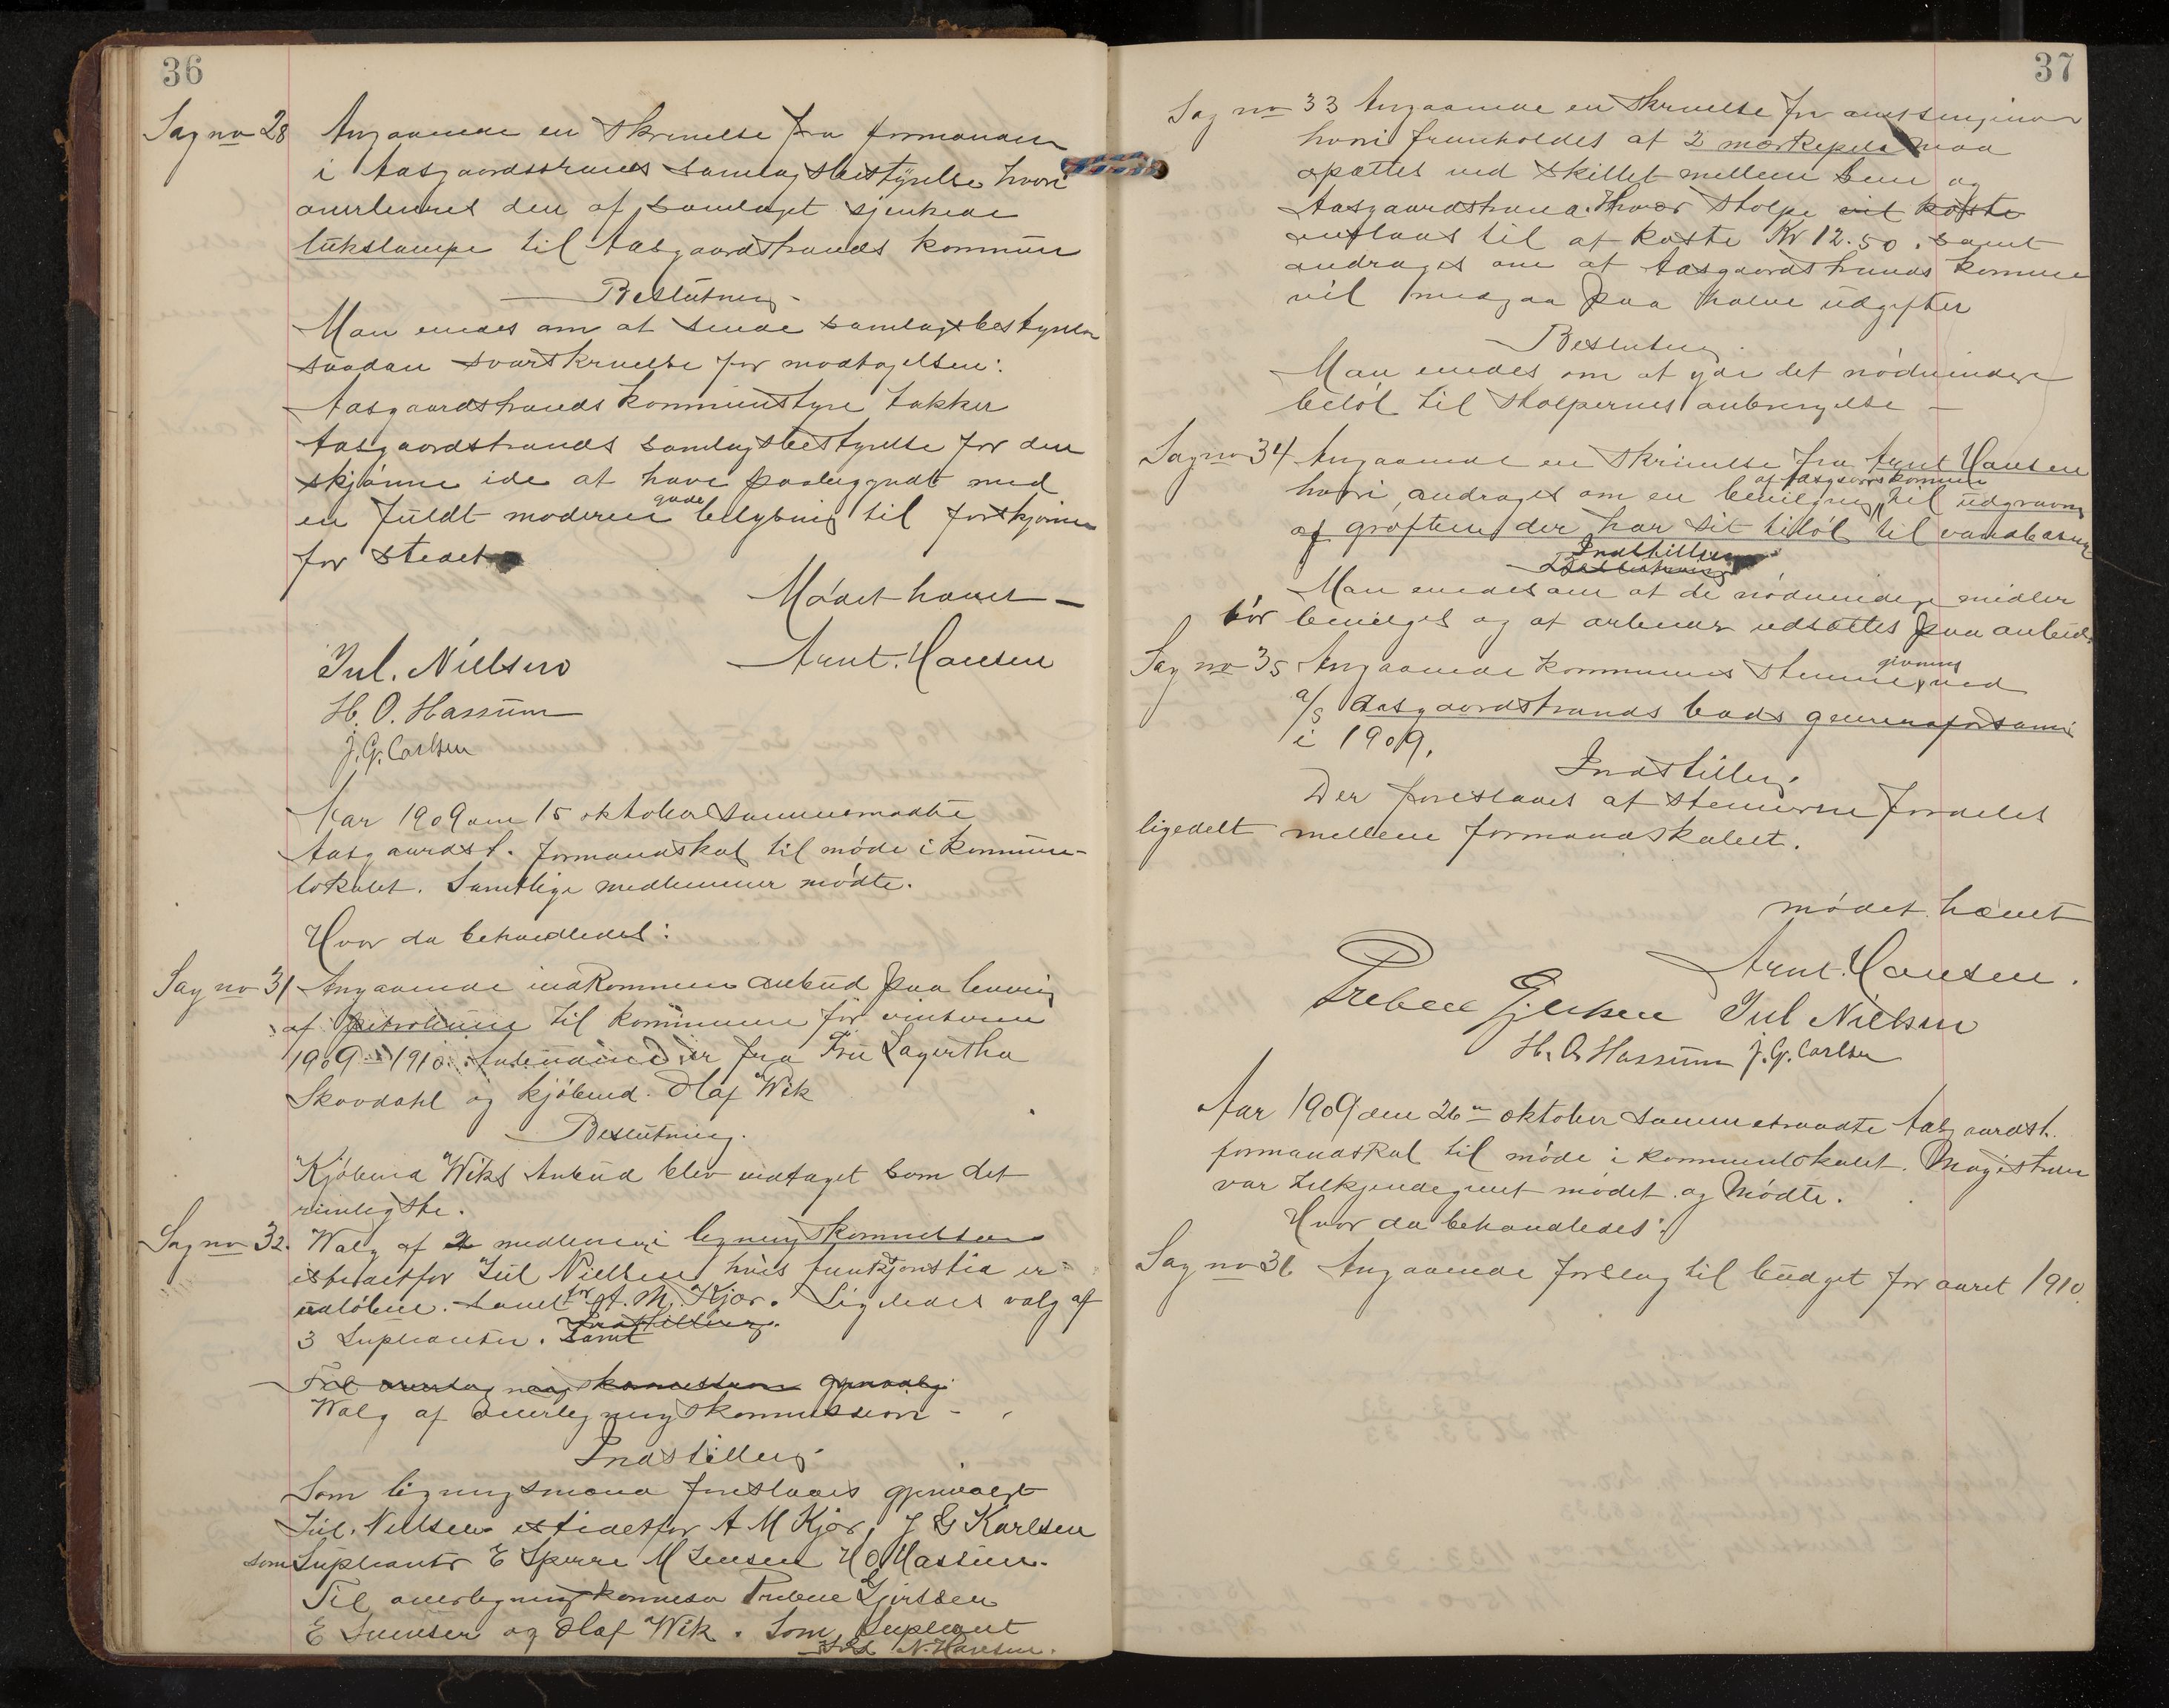 36
Sag no 28 Angaaende en skrivelse fra formanden
i Aasgaardsstrands samlagsbestyrelse hvori
overleveret den af samlaget sjenkede
lukslampe til Aasgaardstrands kommune
Beslutning
Man enedes om at sende samlagsbestyrelsen
saadan svarskrivelse for modtagelsen:
Aasgaardstrands kommunstyre takker
Aasgaardstrands samlagsbestyrelse for den
skjønne ide at have paabegyndt med
en fuldt moderne gade belysning til forskjønne
for stedet
Mødet hævet
Arnt. Hansen
Jul. Nielsen
H. O. Hassum
J. G. Carlsen
Aar 1909 den 15 oktober sammenmødte
Aasgaardst. formandskab til møde i kommune-
lokalet. Samtlige medlemmer mødte.
Hvor da behandledes:
Sag no 31 Angaaende indkommen anbud paa levering
af petroleum til kommunen for vinteren
1909 - 1910. Anbudene er fra Fru Lagertha
Skovdahl og kjøbmd. Olaf Wik
Beslutning.
Kjøbmd Wiks Anbud blev vedtaget som det
rimligste.
Sag no 32. Valg af 2 medlemmer i ligningskommissionen
istedetfor Jul Nielsen hvis funktjonstid er
udløben. samt for A. M. Kjær. Ligeledes valg af
3 Suplianter. samt
Indstilling.
Til overligningskommissionen gjenvalg
Valg af overligningskommission -
Indstilling
Som ligningsmænd foreslaaes gjenvalgt
Jul. Nielsen istedetfor A M Kjær, J G Karlsen
som Suplianter E Sperre M Jensen H O Hassum.
Til overligningskommission Preben Gjertsen
E Svensen og Olaf Wik. Som Supleant
N. Hansen.
37
Sag no 33 Angaaende en skrivelse fra amtsingeniør
hvori fremholdes at 2 mærkepæle maa
opsættes ved skillet mellem Sem og
Aasgaardstrand. Hver stolpe vil koste
anslaas til at koste Kr 12.50. samt
andrages om at Aasgaardstrands kommune
vil medgaa paa halve udgifter
Beslutning
Man enedes om at yde det nødvendige
beløb til stolpernes anbringelse -
Sag no 34 Angaaende en skrivelse fra Arnt Hansen
hvori andrages om en bevilgning af Aasgaards kommune til udgravning
af grøften der har sit tilløb til vandbasin
Indstilling
Beslutning
Man enedes om at de nødvendige midler
bør bevilges og at arbeidet udsættes paa anbud.
Sag no 35 Angaaende kommunens stemmegivning ved
a/s Aasgaardstrands bads generalforsaml
i 1909.
Indstilling
Der foreslaaes at stemmerne fordeles
ligedelt mellem formandskabet.
mødet hævet
Arnt. Hansen.
Preben Gjertsen Jul Nielsen
H. O. Hassum J. G. Carlsen
Aar 1909 den 26 oktober sammentraadte Aasgaardst.
formandskab til møde i kommunelokalet. Magistraten
var tilkjendegivet mødet og Mødte.
Hvor da behandledes:
Sag no 36 Angaaende forslag til budget for aaret 1910.